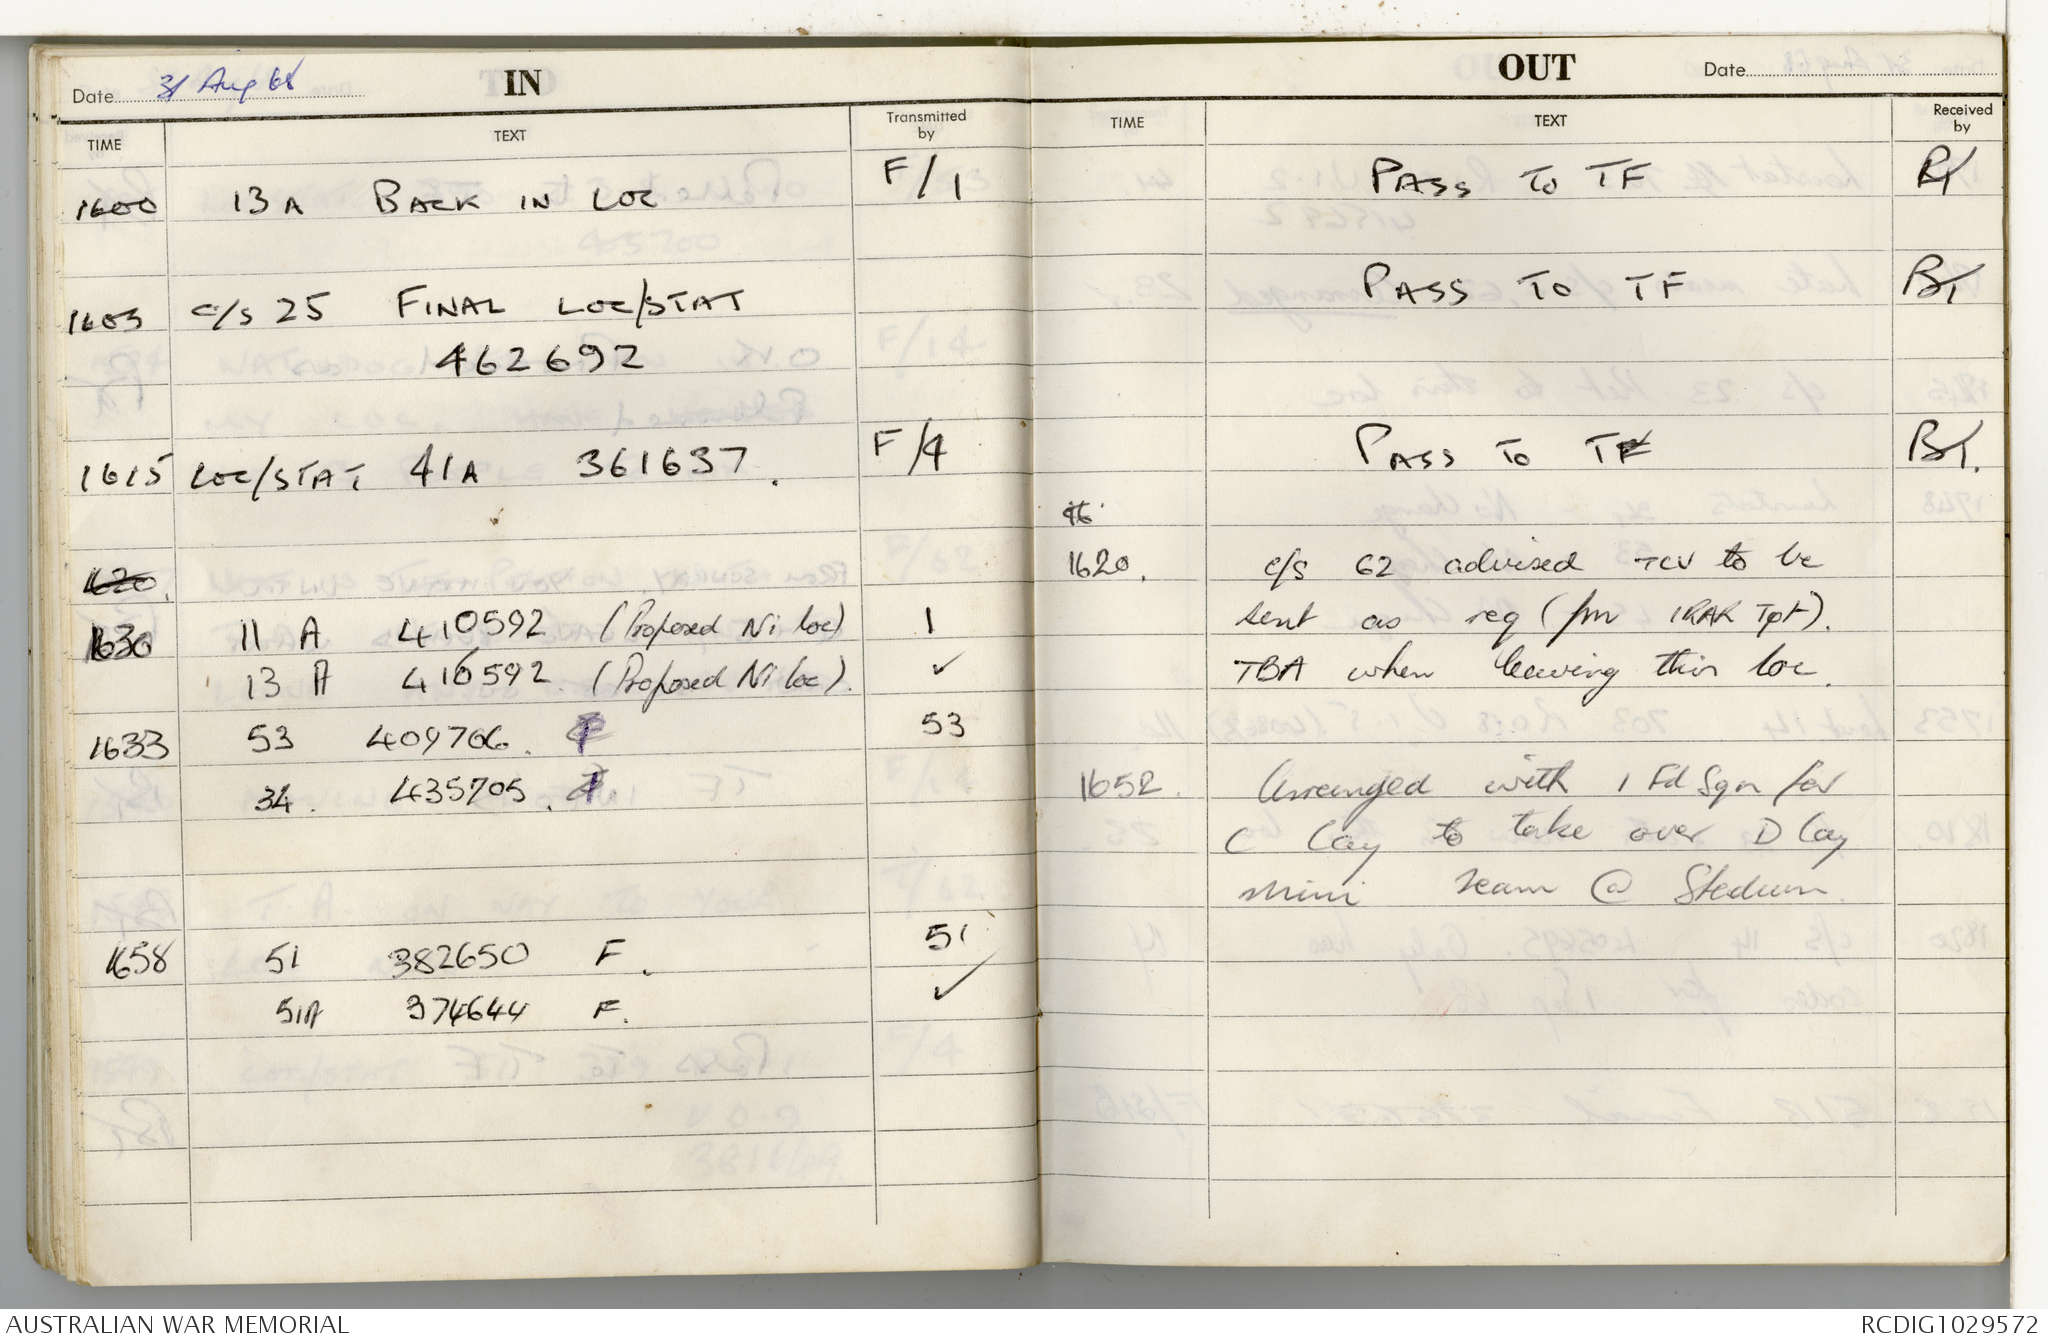 Date 31 Aug 68 IN
TIME TEXT Transmitted by
1600 13A BACK IN LOC F/1
1603 c/s 25 FINAL LOC/STAT
462692
1615 LOC/STAT 41A 361637. F/4
1620.
1630 11 A 410592 (Proposed Ni loc) 1
13 A 410592. (Proposed Ni loc). ✓
1633 53 409706. F 53
34. 435705. F
1658 51 382650 F. 51
51A 374644 F. ✓
OUT Date
TIME TEXT Received by
PASS TO TF
PASS TO TF BT
PASS TO TF BT.
1620. c/s 62 advised TCV to be
sent as req (fm 1RAR Tpt).
TBA when leaving this loc.
1652. Arranged with 1 Fd Sqn for
C Coy to take over D Coy
mini team @ Stadium.
AUSTRALIAN WAR MEMORIAL RCDIG1029572